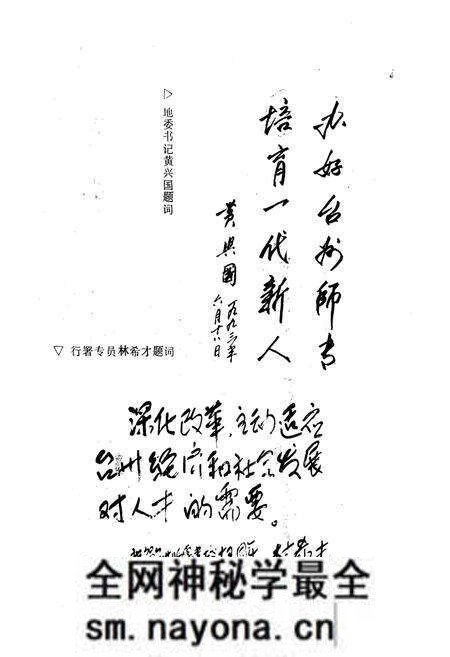 办好台州師专
培育一代新人
黄興國
一九九三年
六月十八日
▷ 地委书记黄兴国题词
▽ 行署专员林希才题词
深化改革，主动适应
台州经济和社会发展
对人才的需要。
林希才
全网神秘学最全
sm.nayona.cn